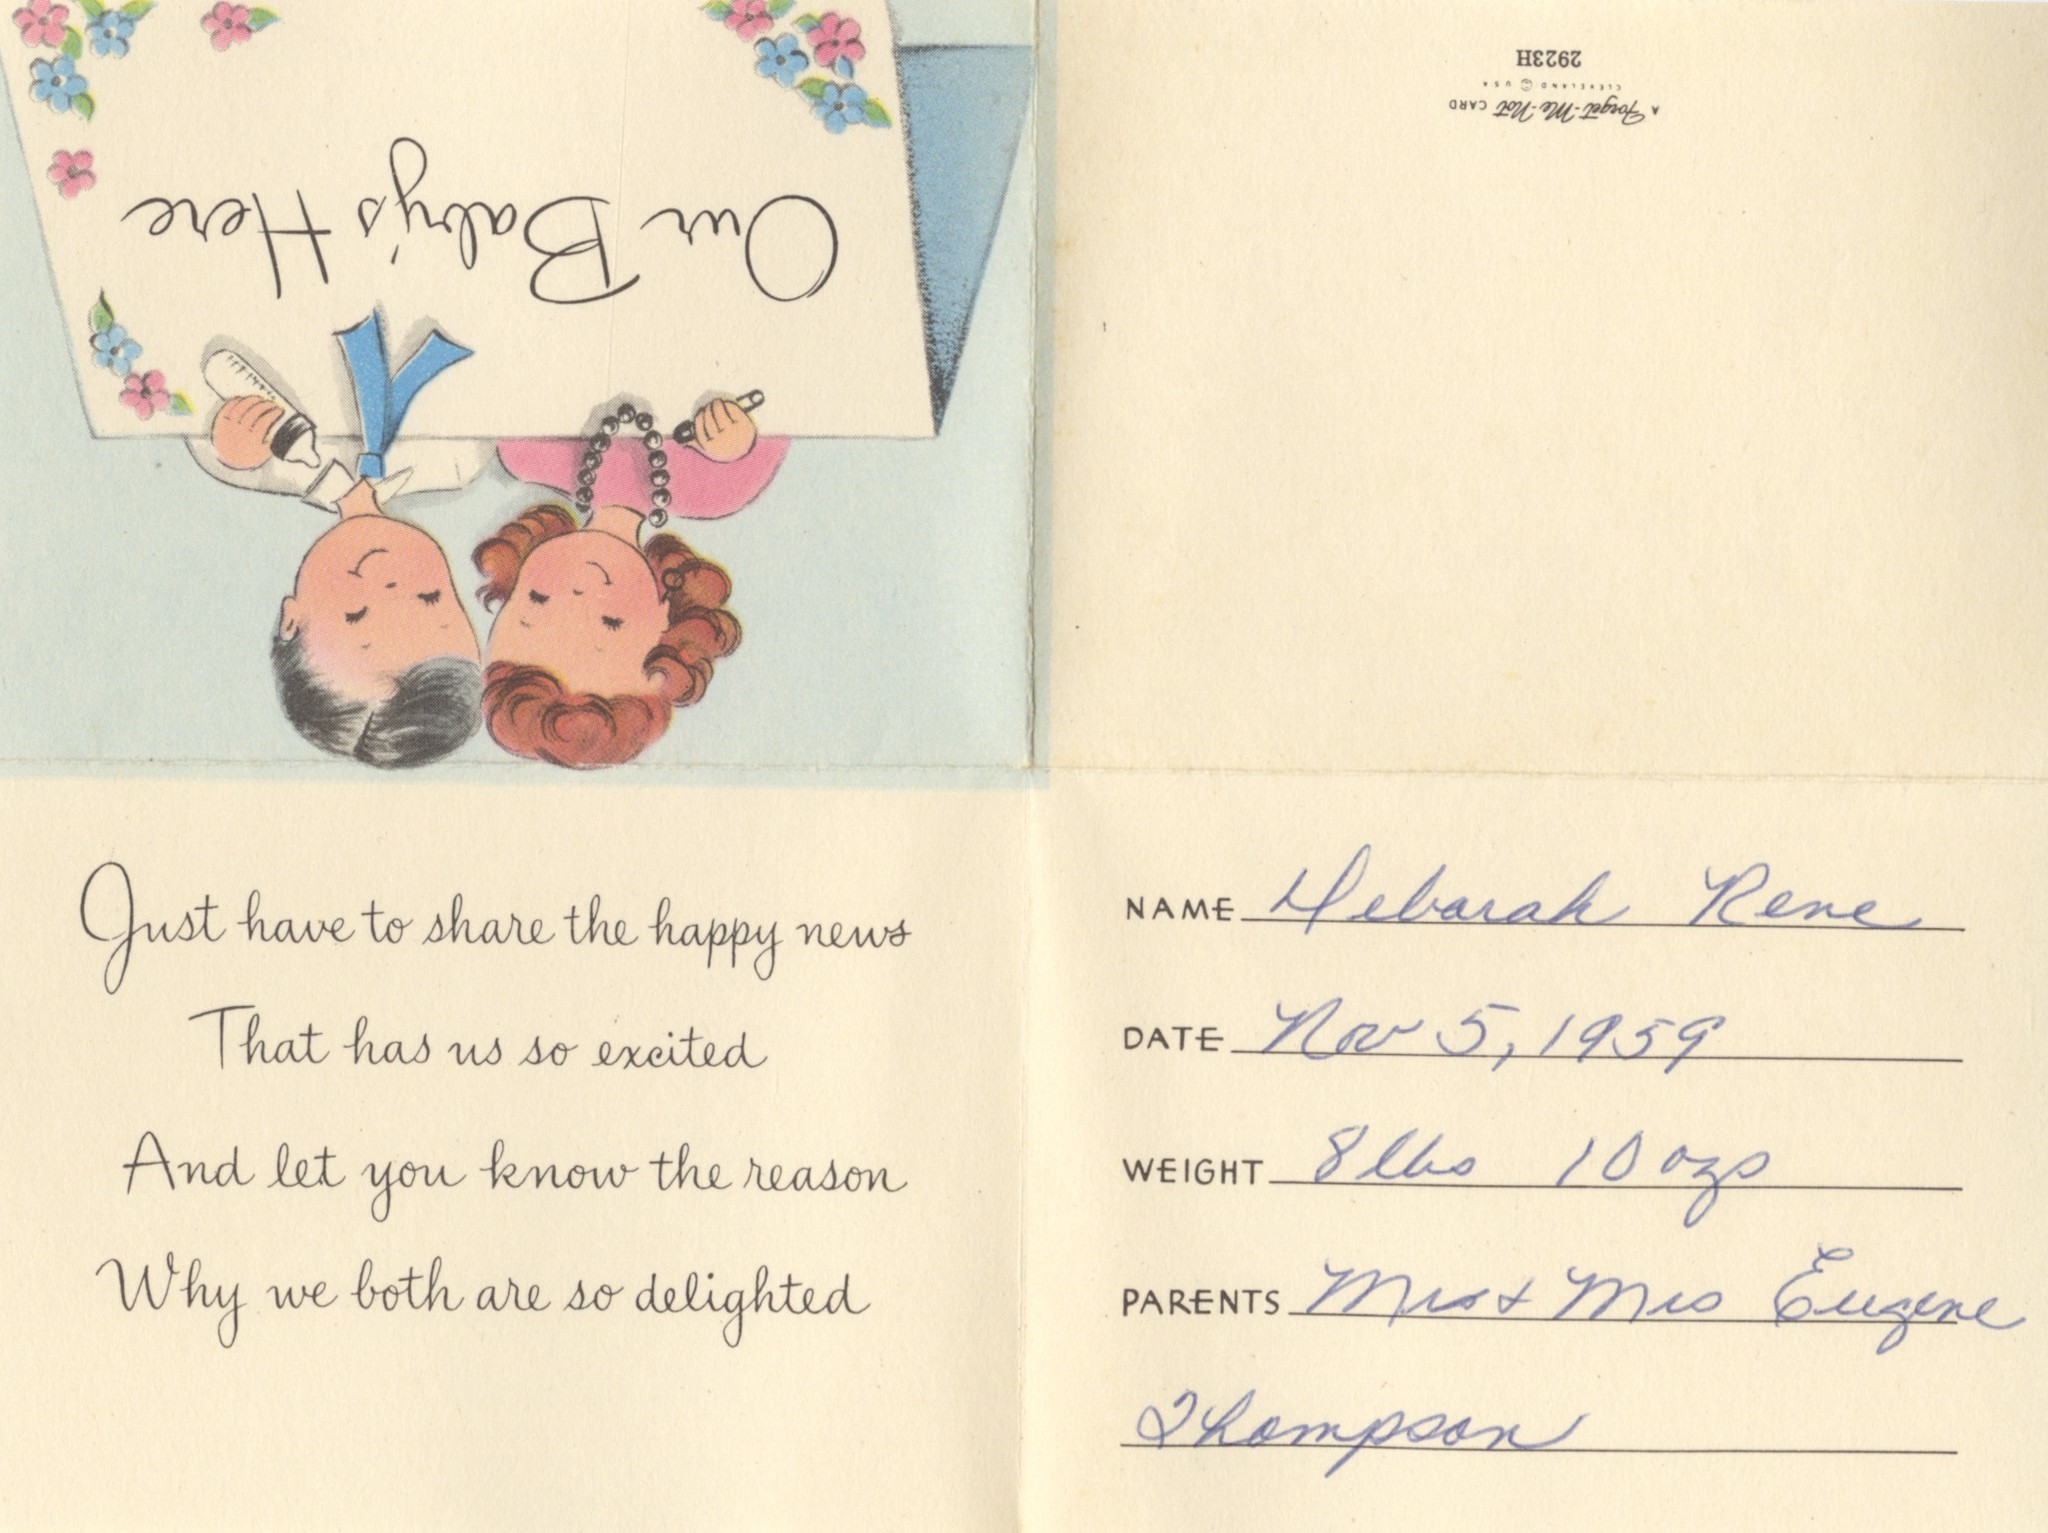 Our Baby's Here
A Forget-Me-Not CARD
CLEVELAND © USA
2923H
Just have to share the happy news
That has us so excited
And let you know the reason
Why we both are so delighted
NAME Deborah Rene
DATE Nov 5, 1959
WEIGHT 8 lbs 10 ozs
PARENTS Mr & Mrs Eugene
Thompson